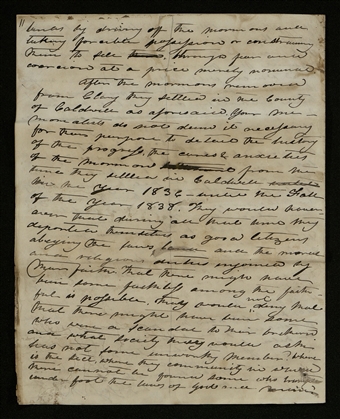 lands by driving off the mormons and
taking forcible possession or constraining
them to sell through fear and
coercion at a price merely nominal
After the mormons removed
from Clay they settled in the County
of Caldwell as aforesaid your me-
morialists do not deem it necessary
for their purpose to detail the history
of the progress, the cares & anxieties
of the mormons from the
time they settled in Caldwell
in the year 1836 until the Fall
of the year 1838. They would how-
ever state during all that time they
deported themselves as good citizens
obeying the laws and the moral
and religious duties enjoined by
their faith. That there might have
been some faithless among the faith
ful is possible. They would not deny that
that there might have been some
who were a scandal to their brethren
and what society they would ask
has not some unworthy member where
is the sect, where the community in which
there cannot be found some who trample
under foot the laws of God and